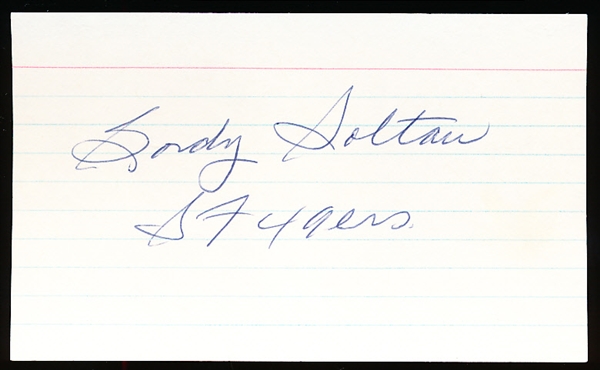 Gordy Soltau
SF 49ers